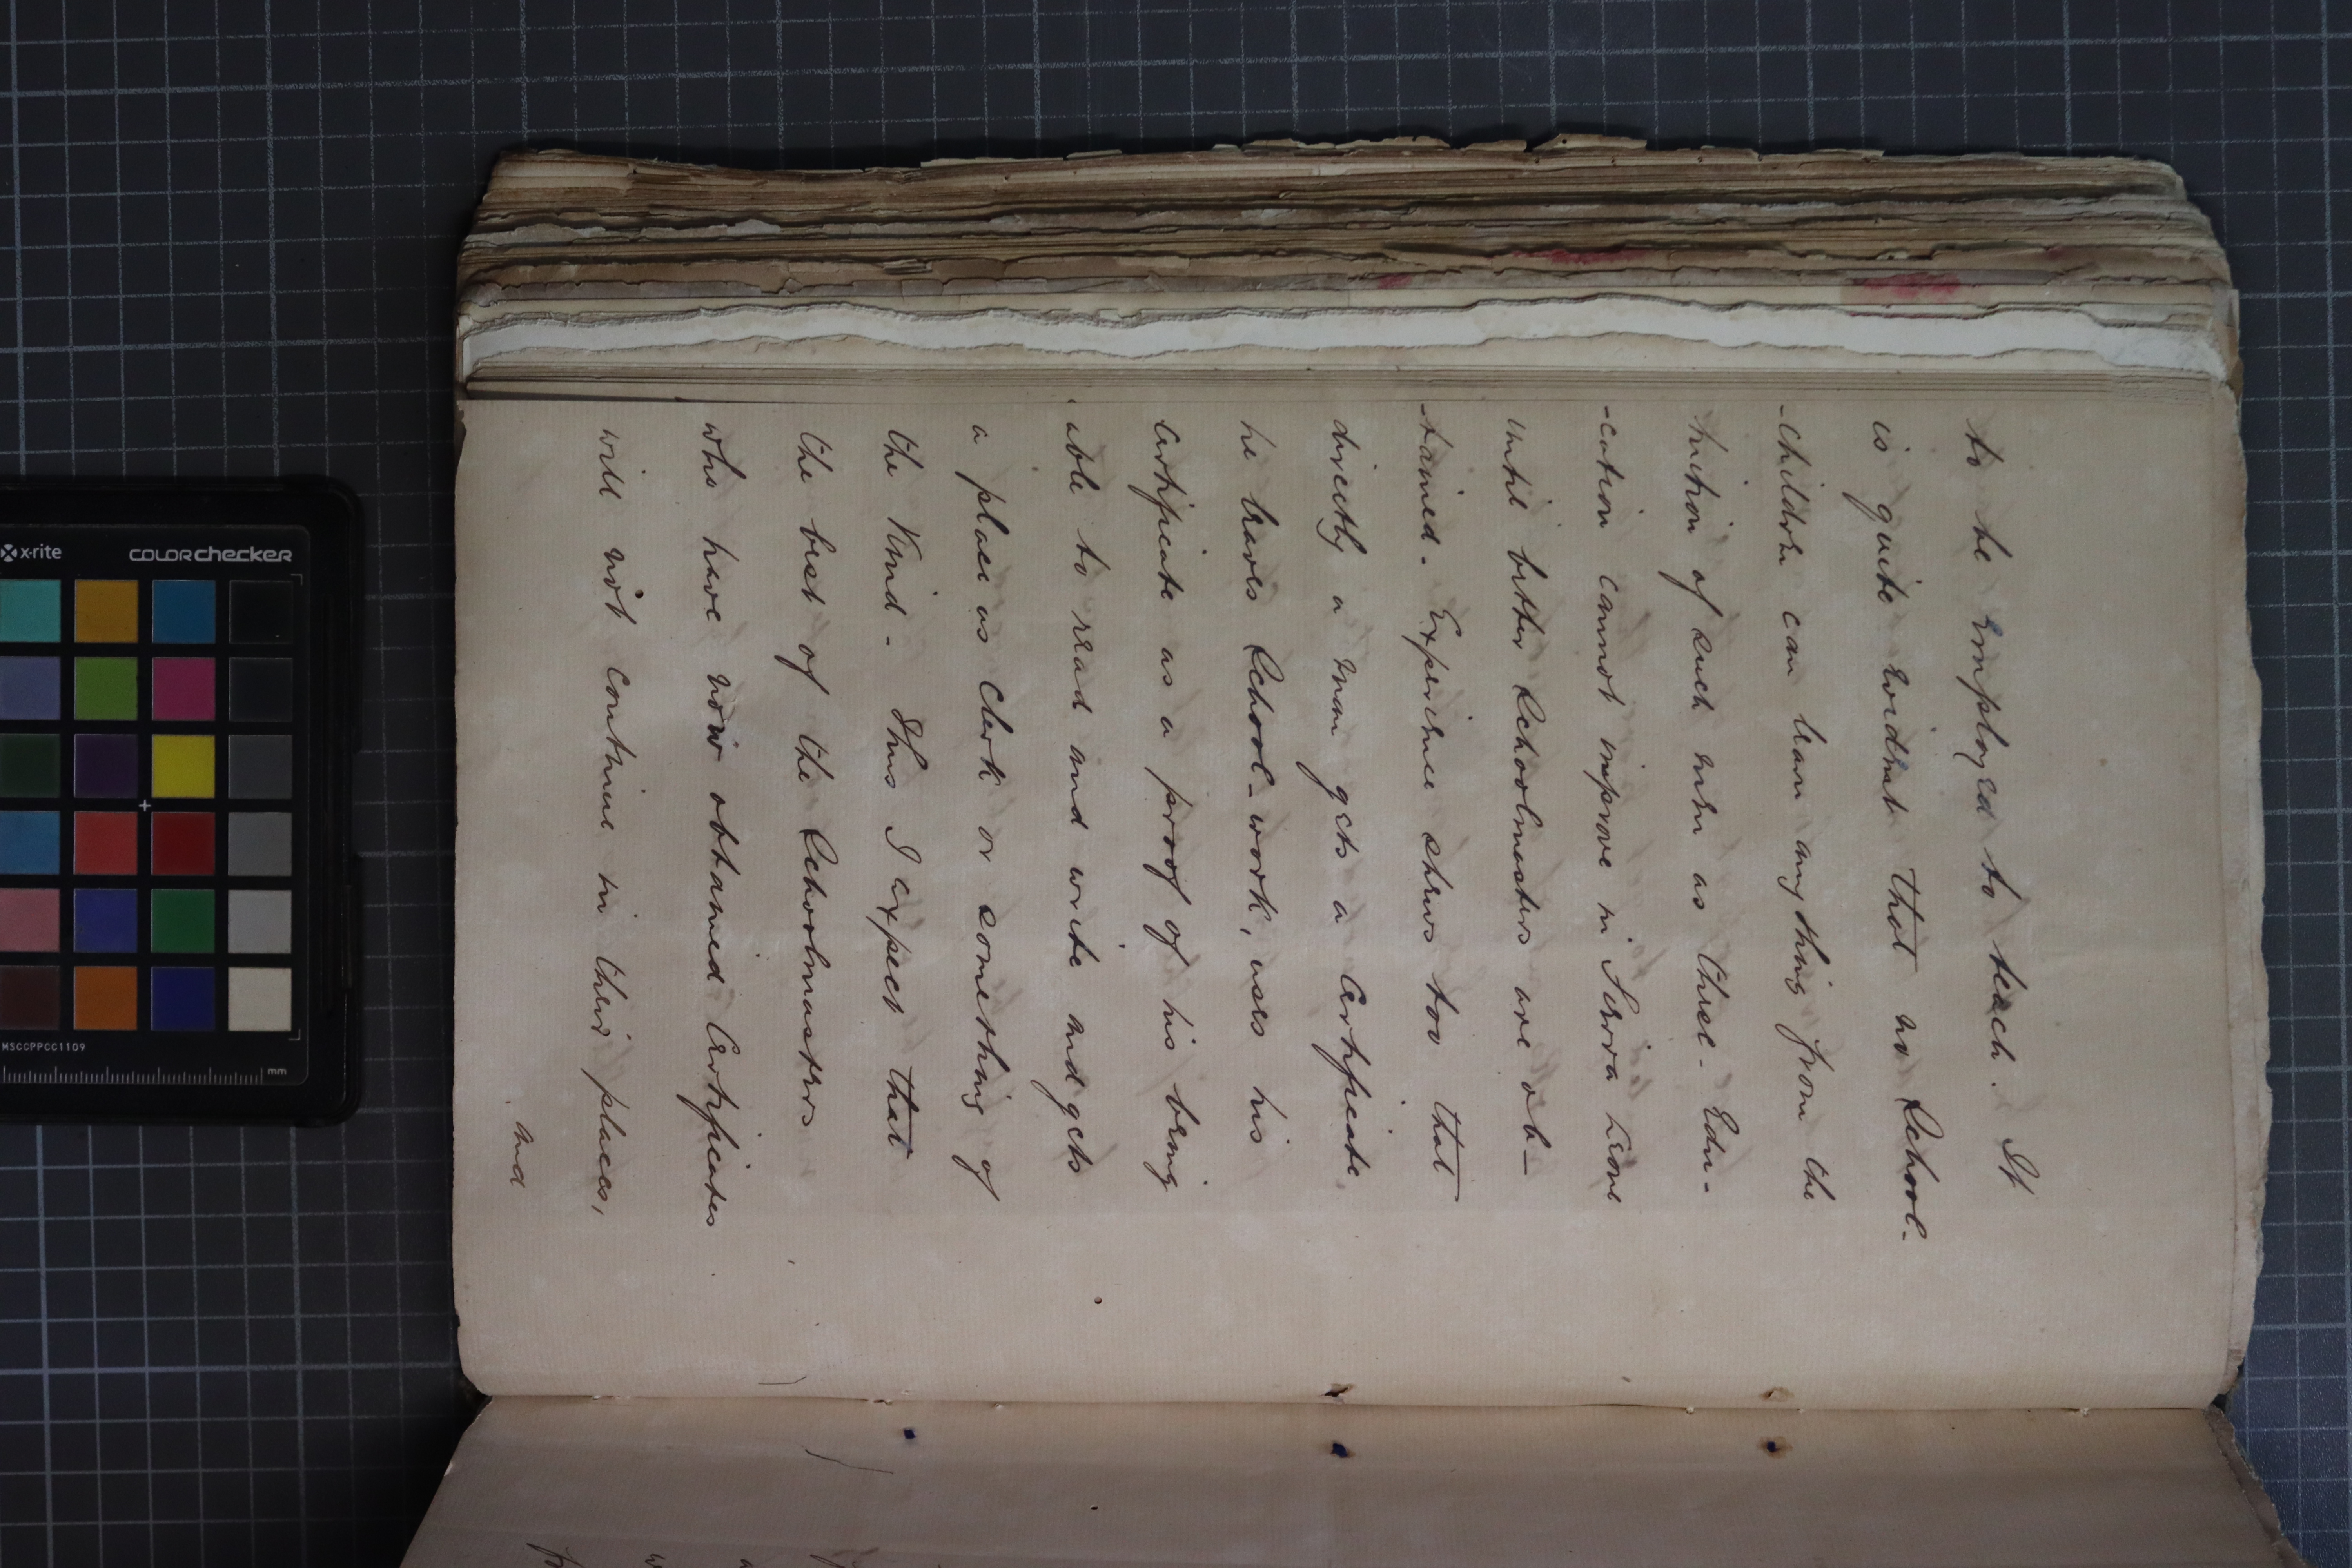 to be employed to teach. It
is quite evident that no School-
-children can learn anything from the
tuition of such men as these. Edu-
-cation cannot improve in Sierra Leone
until better Schoolmasters are ob-
-tained. Experience shews too that
directly a man gets a Certificate
he leaves School-work, uses his
Certificate as a proof of his being
able to read and write and gets
a place as Clerk or something of
the Kind. Thus I expect that
the best of the Schoolmasters
who have now obtained Certificates
will not continue in their places,
and
x-rite
COLORchecker
MSCCPPCC1109
mm